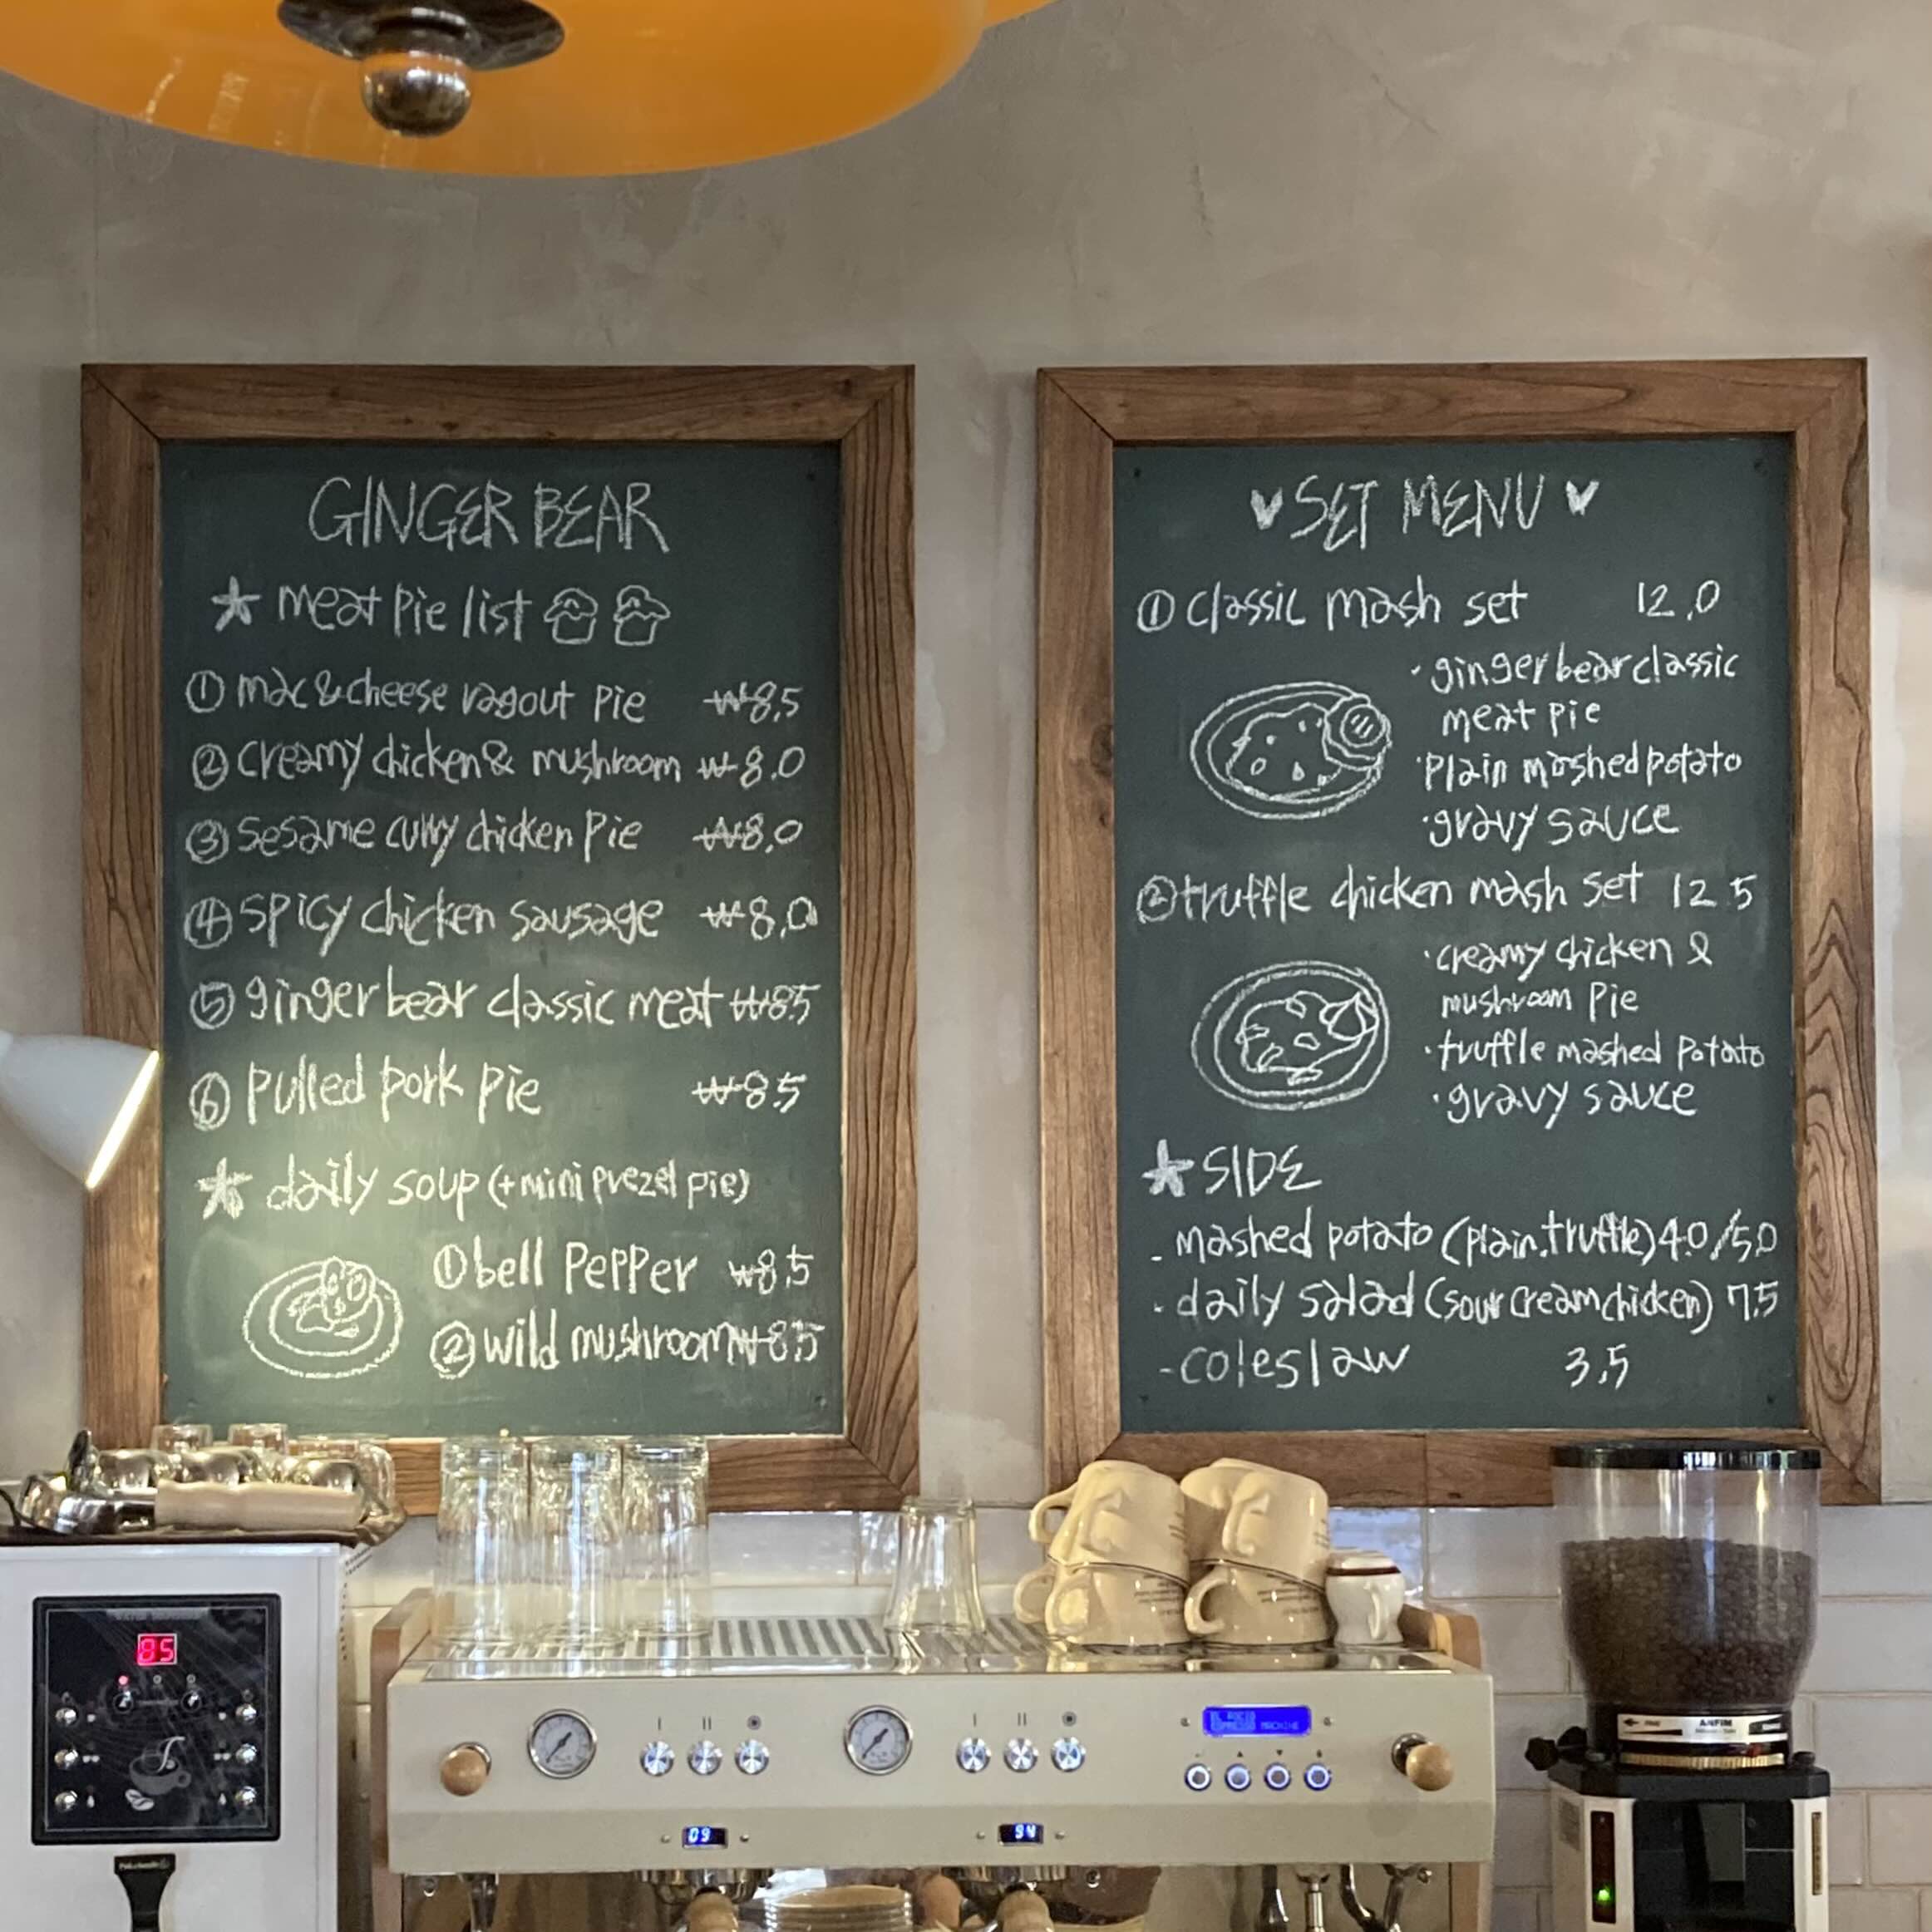 GINGER BEAR
★ meat pie list
① mac & cheese ragout pie ₩8.5
② creamy chicken & mushroom ₩8.0
③ sesame curry chicken pie ₩8.0
④ spicy chicken sausage ₩8.0
⑤ ginger bear classic meat ₩8.5
⑥ pulled pork pie ₩8.5
★ daily soup (+mini prezel pie)
① bell pepper ₩8.5
② wild mushroom ₩8.5
♥ SET MENU ♥
① classic mash set 12.0
· ginger bear classic
meat pie
· plain mashed potato
· gravy sauce
② truffle chicken mash set 12.5
· creamy chicken &
mushroom pie
· truffle mashed potato
· gravy sauce
★ SIDE
- mashed potato (plain.truffle) 4.0/5.0
- daily salad (sour cream chicken) 7.5
- coleslaw 3.5
85
I II
I II
ESPRESSO MACHINE
09
94
ANFIM